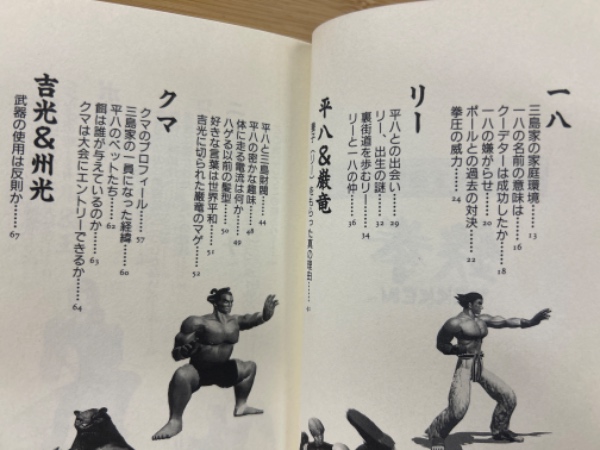 一八
三島家の家庭環境……13
一八の名前の意味は……16
クーデターは成功したか……18
一八の嫌がらせ……20
ポールとの過去の対決……22
拳圧の威力……24
リー
平八との出会い……29
リー、出生の謎……32
裏街道を歩むリー……34
リーと一八の仲……36
平八&厳竜
養子(リー)をもらった真の理由……41
平八と三島財閥……44
平八の密かな趣味……48
体に走る電流は何か……49
ハゲる以前の髪型……50
好きな言葉は世界平和……51
吉光に切られた厳竜のマゲ……52
クマ
クマのプロフィール……57
三島家の一員になった経緯……60
平八のペットたち……62
餌は誰が与えているのか……63
クマは大会にエントリーできるか……64
吉光&州光
武器の使用は反則か……67